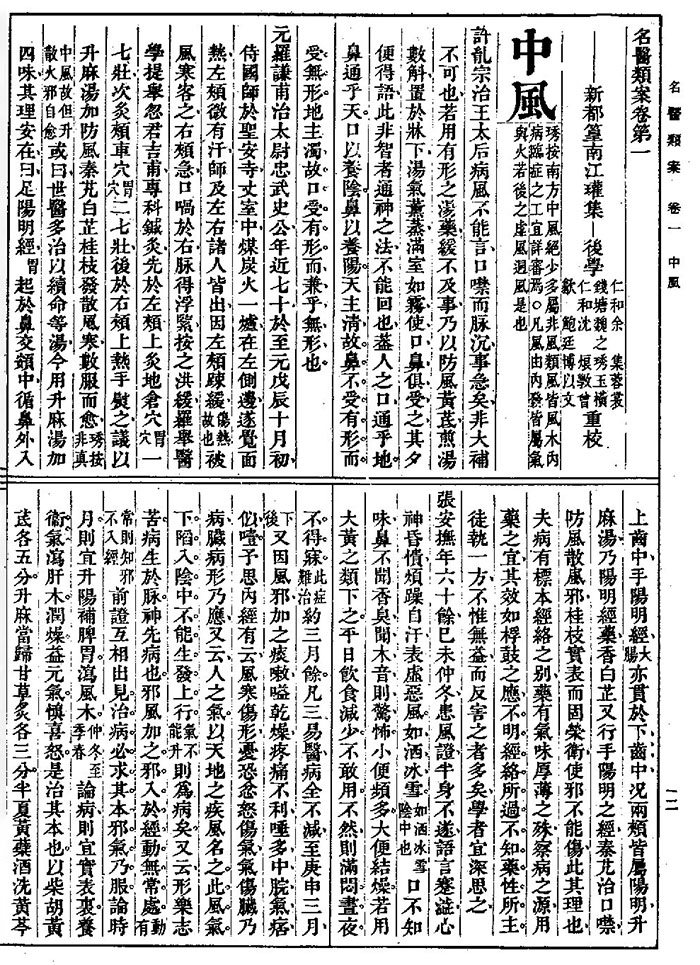 名醫類案 卷一 中風
一二
名醫類案卷第一
新都篁南江瓘集 後學 仁和余 集蓉裳 錢塘魏之琇玉橫 仁和沈 烺敦曾 歙 鮑廷博以文 重校
中風 琇按南方中風絕少多屬非風類風皆風木內病臨症之工宜詳審焉○凡風由內發皆屬氣與火若後之虛風迴風是也
許胤宗治王太后病風不能言口噤而脈沉事急矣非大補
不可也若用有形之湯藥緩不及事乃以防風黃芪煎湯
數斛置於牀下湯氣薰蒸滿室如霧使口鼻俱受之其夕
便得語此非智者通神之法不能回也蓋人之口通乎地
鼻通乎天口以養陰鼻以養陽天主清故鼻不受有形而
受無形地主濁故口受有形而兼乎無形也
元羅謙甫治太尉忠武史公年近七十於至元戊辰十月初
侍國師於聖安寺丈室中煤炭火一爐在左側邊遂覺面
熱左頰微有汗師及左右諸人皆出因左頰疎緩傷熱故也被
風寒客之右頰急口喎於右脈得浮緊按之洪緩羅舉醫
學提舉忽君吉甫專科鍼灸先於左頰上灸地倉穴胃穴一
七壯次灸頰車穴胃穴二七壯後於右頰上熱手熨之議以
升麻湯加防風秦艽白芷桂枝發散風寒數服而愈琇按非真
中風故但升散火邪自愈或曰世醫多治以續命等湯今用升麻湯加
四味其理安在曰足陽明經胃起於鼻交頞中循鼻外入
上齒中手陽明經大腸亦貫於下齒中況兩頰皆屬陽明升
麻湯乃陽明經藥香白芷又行手陽明之經秦艽治口噤
防風散風邪桂枝實表而固榮衛使邪不能傷此其理也
夫病有標本經絡之別藥有氣味厚薄之殊察病之源用
藥之宜其效如桴鼓之應不明經絡所過不知藥性所主
徒執一方不惟無益而反害之者多矣學者宜深思之
張安撫年六十餘己未仲冬患風證半身不遂語言蹇澁心
神昏憒煩躁自汗表虛惡風如洒冰雪如洒冰雪陰中也口不知
味鼻不聞香臭聞木音則驚怖小便頻多大便結燥若用
大黃之類下之平日飲食減少不敢用不然則滿悶晝夜
不得寐此症難治約三月餘凡三易醫病全不減至庚申三月
下後又因風邪加之痰嗽嗌乾燥疼痛不利唾多中脘氣痞
似噎予思內經有云風寒傷形憂恐忿怒傷氣氣傷臟乃
病臟病形乃應又云人之氣以天地之疾風名之此風氣
下陷入陰中不能生發上行氣不能升則為病矣又云形樂志
苦病生於脈神先病也邪風加之邪入於經動無常處有動
常則知邪不入經前證互相出見治病必求其本邪氣乃服論時
月則宜升陽補脾胃瀉風木仲冬至季春論病則宜實表裏養
衛氣瀉肝木潤燥益元氣慎喜怒是治其本也以柴胡黃
芪各五分升麻當歸甘草炙各三分半夏黃蘗酒洗黃芩